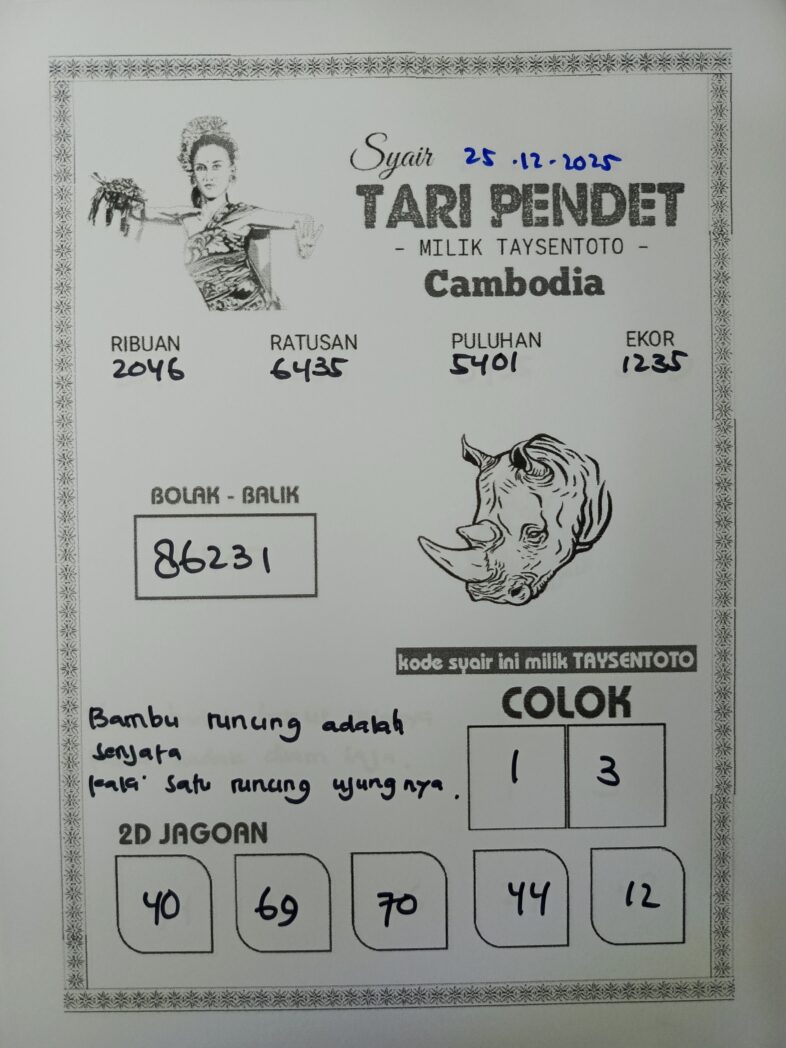 Syair 25.12.2025
TARI PENDET
- MILIK TAYSENTOTO -
Cambodia
RIBUAN RATUSAN PULUHAN EKOR
2046 6435 5401 1235
BOLAK - BALIK
86231
kode syair ini milik TAYSENTOTO
COLOK
1 3
Bambu runcing adalah
senjata
satu runcing ujungnya.
2D JAGOAN
40 69 70 44 12